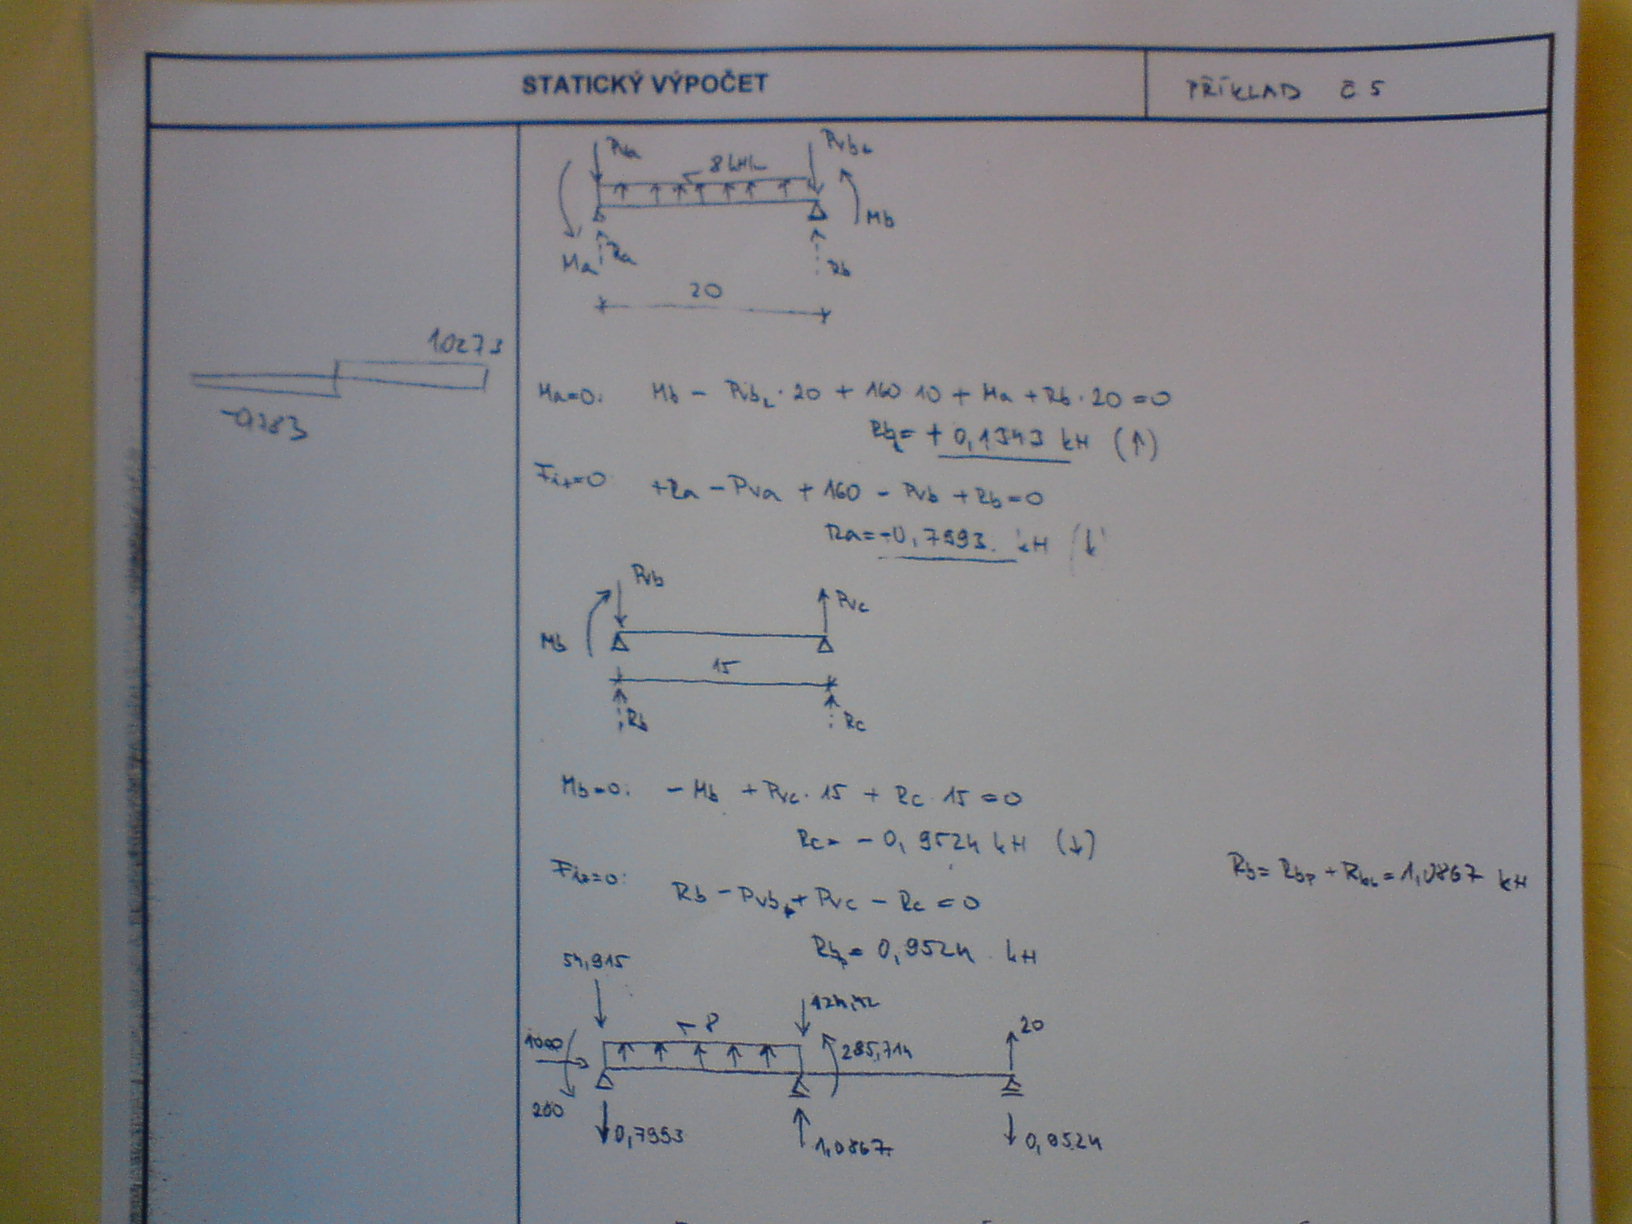 STATICKÝ VÝPOČET
PŘÍKLAD Č 5
Pva
8 kN/m
Mb
Ma
Ra
Rb
20
1.0273
Ma=0: Mb - PvbL · 20 + 160 · 10 + Ma + Rb · 20 = 0
= + 0,1343 kN (↑)
+Ra - Pva + 160 - Pvb + Rb = 0
Ra = -0,7993 kN (↓)
Pvb
Pvc
Mb
15
Rb
Rc
Mb=0: - Mb + Pvc · 15 + Rc · 15 = 0
Rc = - 0,9524 kN (↓)
Rb = Rbp + RbL = 1,0867 kN
Rb - Pvbp + Pvc - Rc = 0
= 0,9524 kN
54,915
8
20
1000
285,714
200
0,7993
1,0867
0,9524